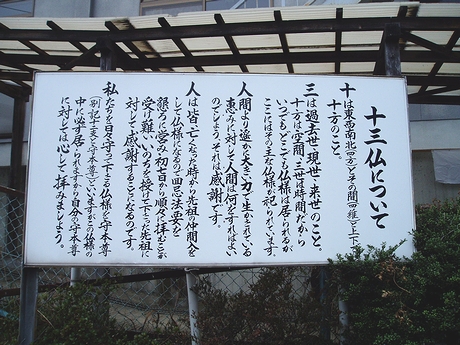 十三仏について
十は東西南北(四方)とその間(四維)と上下
十方のこと。
三は過去世・現世・来世のこと。
十方は空間、三世は時間だから
いつでもどこでも仏様は居られるが
ここにはその主な仏様が祀られています。
人間より遥か大きい力で生かされている
恵みに対して人間は何をすればよい
のでしょう。それは感謝です。
人は皆、亡くなった時から先祖の仲間入を
して仏様になるので回忌法要を
懇ろに営み初七日から順々に拝むことが
受け難いいのちを授けて下さった先祖に
対して感謝することになるのです。
私たちを日々守って下さる仏様を守本尊
(別記十二支と守本尊)といいますがこの仏様の
中に必ず居られますから自分の守本尊
に対しては心して拝みましょう。